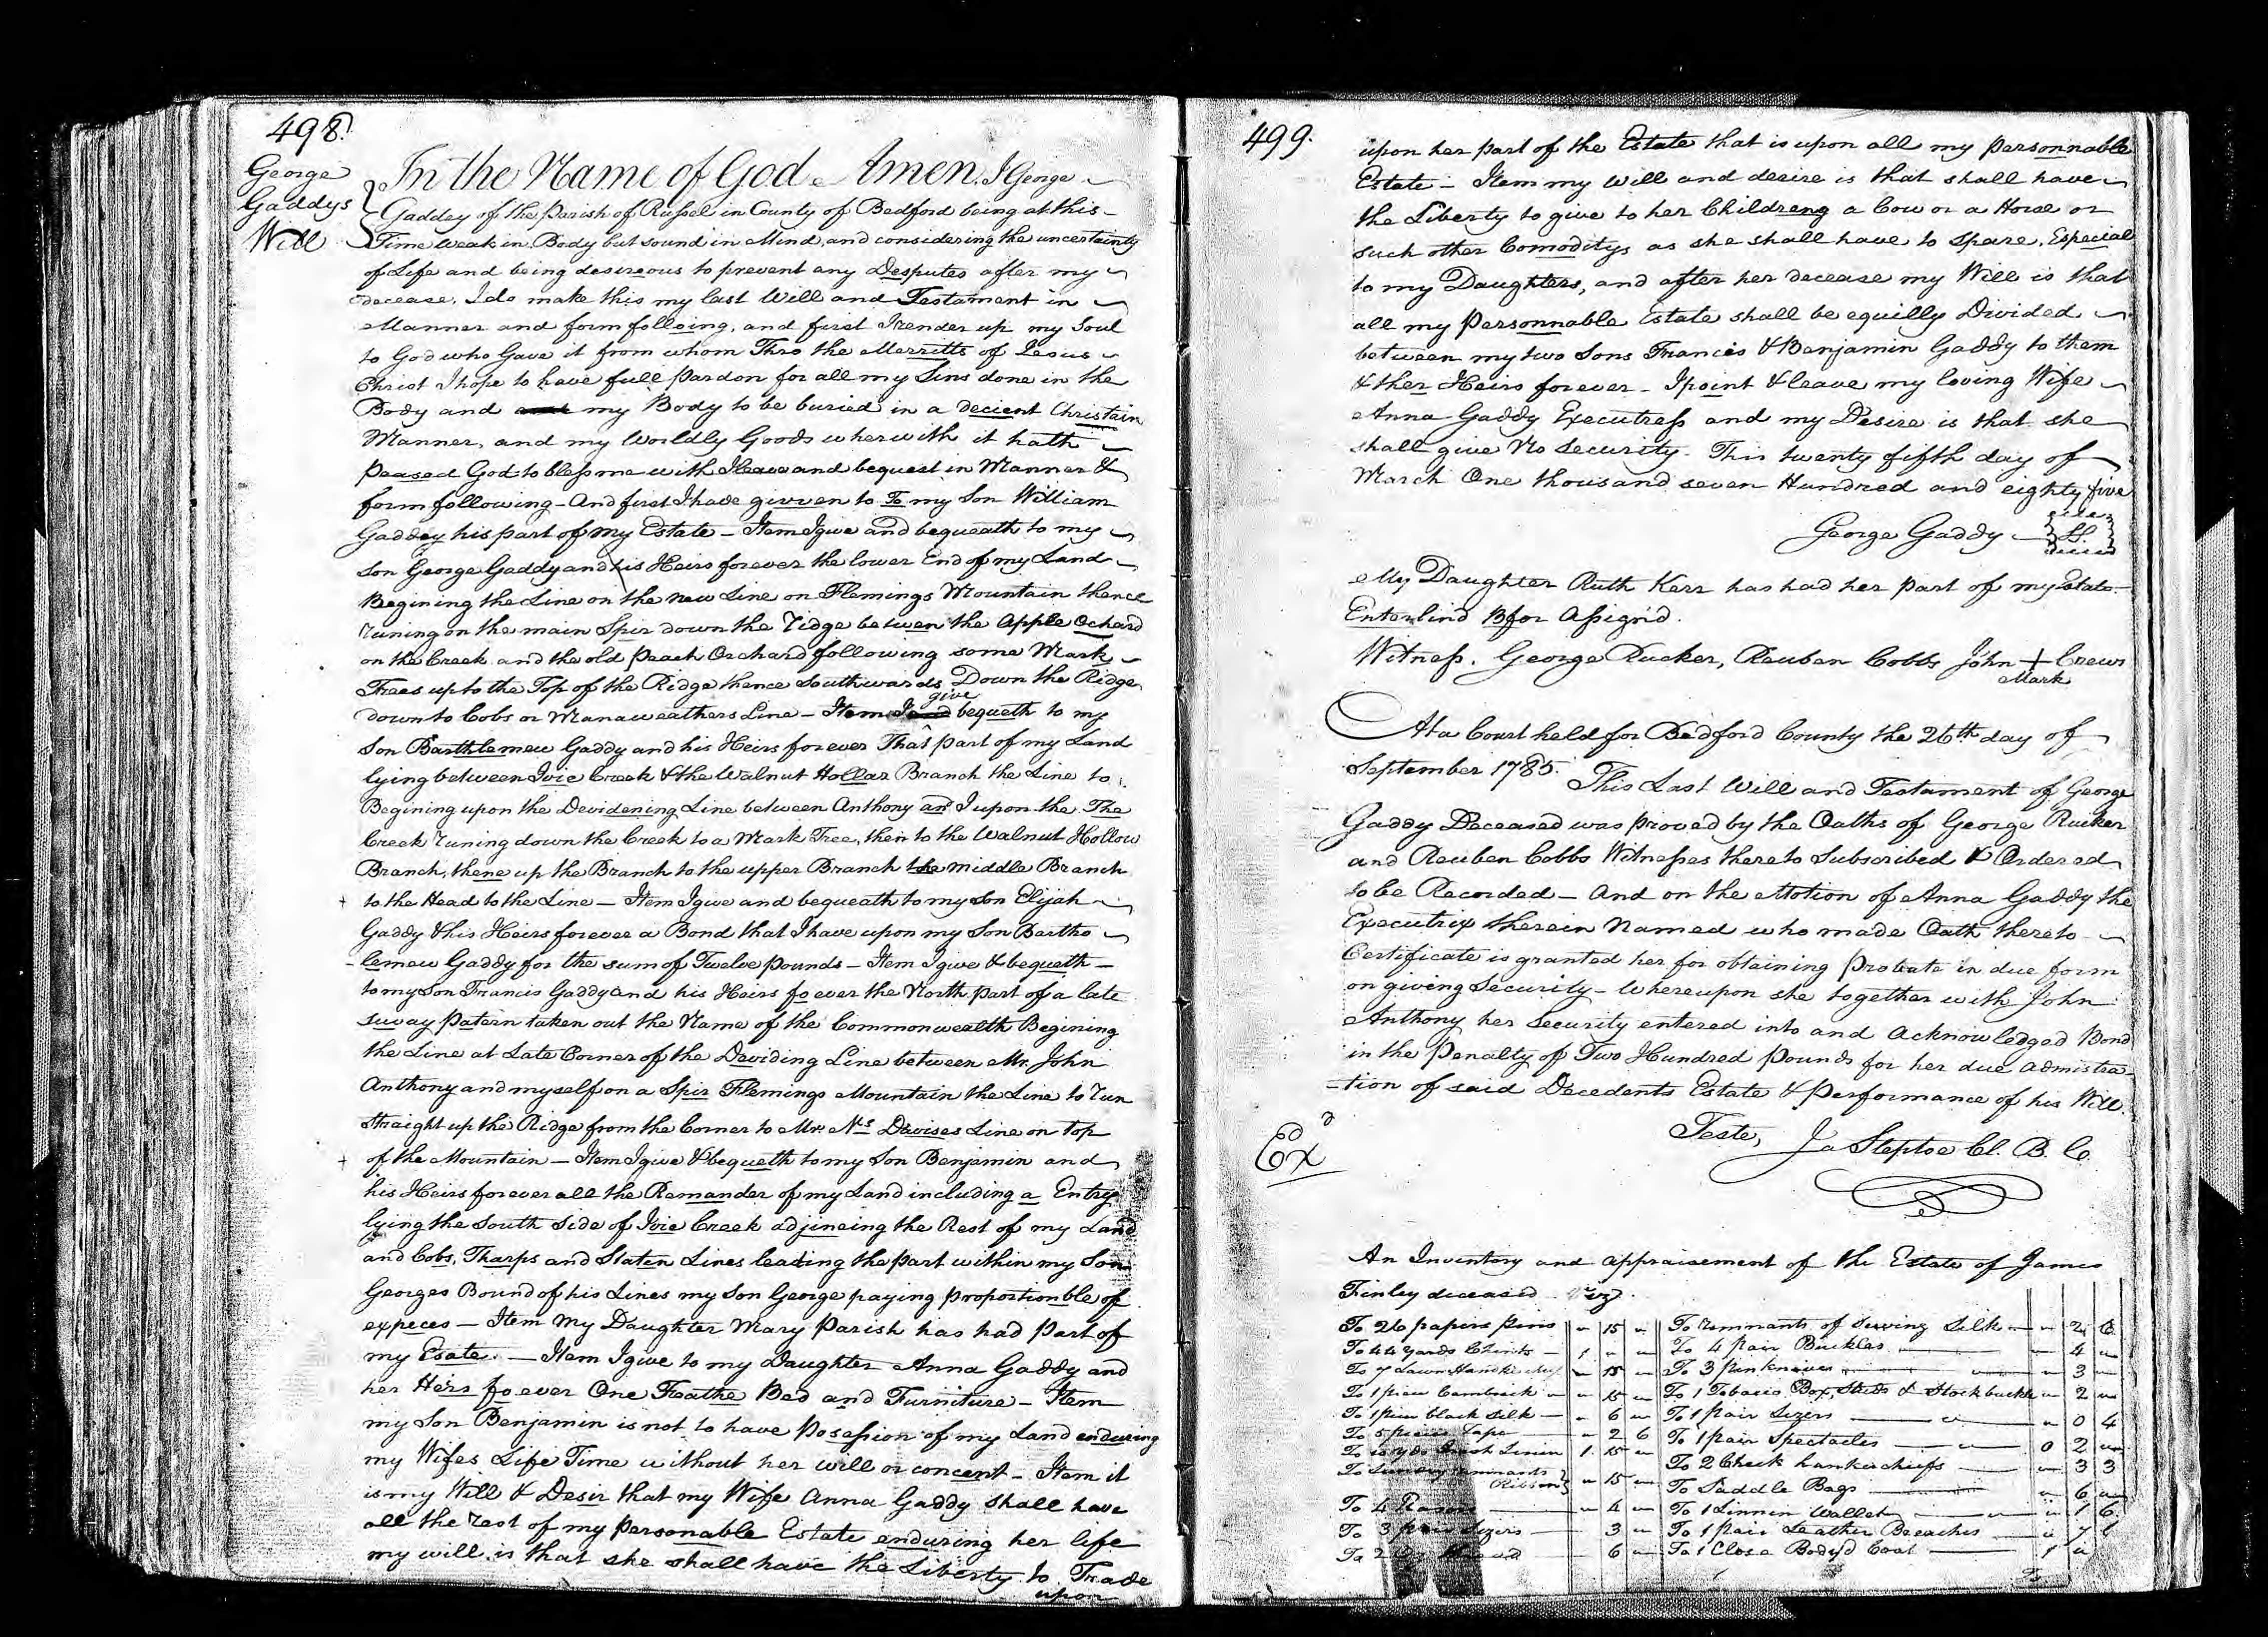 498.
George
Gaddys
Will
In the Name of God. Amen. I George
Gaddey of the Parish of Russel in County of Bedford being at this
Time weak in Body but sound in Mind, and considering the uncertainty
of Life and being desireous to prevent any Desputes after my
decease, I do make this my last Will and Testament in
Manner and form folloing, and first I render up my Soul
to God who Gave it from whom Thro the Merritts of Jesus
Christ I hope to have full Pardon for all my Sins done in the
Body and my Body to be buried in a decient Christain
Manner, and my Worldly Goods wherwith it hath
Peased God to bless me with I leave and bequest in Manner &
form following - And first I have givven to To my Son William
Gaddey his part of my Estate - Item I give and bequeath to my
Son George Gaddy and his Heirs forever the lower End of my Land
Begining the Line on the new Line on Flemings Mountain thence
runing on the main Spir down the ridge betwen the Apple Ochard
on the Creek and the old Peach Orchard following some Mark
Trees up to the Top of the Ridge thence Southwards Down the Ridge
down to Cobs or Manaweathers Line - Item I give bequeth to my
Son Barthlemew Gaddy and his Heirs forever That part of my Land
lying between Ivie Creek & the Walnut Hollar Branch the Line to
Begining upon the Devidening Line between Anthony an I upon the The
Creek runing down the Creek to a Mark Tree, then to the Walnut Hollow
Branch, thene up the Branch to the upper Branch the middle Branch
to the Head to the Line - Item I give and bequeath to my Son Elijah
Gaddy & his Heirs forever a Bond that I have upon my Son Bartho
-lemew Gaddy for the sum of Twelve pounds - Item I give & bequeth -
to my Son Francis Gaddy and his Heirs fo ever the North part of a late
suvay Patern taken out the Name of the Commonwealth Begining
the Line at Late Corner of the Daviding Line between Mr. John
Anthony and myself on a Spir Flemings Mountain the Line to run
straight up the Ridge from the Corner to Mr. Davises Line on top
of the Mountain - Item I give & bequeth to my Son Benjamin and
his Heirs forever all the Remander of my Land including a Entry
lying the South side of Ivie Creek adjineing the Rest of my Land
and Cobs, Tharps and Slaten Lines leading the part within my Son
Georges Bound of his Lines my Son George paying proportionble of
expeces - Item My Daughter Mary Parish has had Part of
my Esate. - Item I give to my Daughter Anna Gaddy and
her Heirs fo ever One Feathe Bed and Furniture - Item
my Son Benjamin is not to have Posession of my Land enduring
my Wifes Life Time without her will or concent - Item it
is my Will & Desir that my Wife Anna Gaddy shall have
all the rest of my Personable Estate enduring her life
my will is that she shall have the Liberty to Trade
upon
499.
upon her part of the Estate that is upon all my Personnable
Estate - Item my Will and desire is that shall have
the Liberty to give to her Childreng a Cow or a Horse or
such other Comoditys as she shall have to spare. Especial
to my Daughters, and after her decease my Will is that
all my Personnable Estate shall be equilly Divided
between my two Sons Francis & Banjamin Gaddy to them
& ther Heirs forever - I point & leave my loving Wife
Anna Gaddy Executress and my Desire is that she
shall give No Security. This twenty fifth day of
March One thousand seven Hundred and eighty five
George Gaddy LS.
My Daughter Ruth Kerr has had her part of my Estate.
Enterlind Bfor Assign'd.
Witness. George Rucker, Reuben Cobbs John + Crews
Mark
At a Court held for Bedford County the 26th day of
September 1785. This Last Will and Testament of George
Gaddy Deceased was proved by the Oaths of George Rucker
and Reuben Cobbs Witnesses thereto Subscribed & Ordered
to be Recorded - And on the Motion of Anna Gaddy the
Executrix therein Named who made Oath thereto
Certificate is granted her for obtaining Probate in due form
on giving Security - Whereupon she together with John
Anthony her Security entered into and acknowledged Bond
in the Penalty of Two Hundred Pounds for her due Admistra-
-tion of said Decedents Estate & Performance of his Will.
Exd
Teste, Ja Steptoe Cl. B. C.
An Inventory and appraisement of the Estate of James
Finley deceased Viz.
To 26 papers pins 15
To 44 yards Chints 1
To 7 Lawn 15
To 1 piece Cambrick 15
To 1 piece black Silk 6
To 5 pieces Tape 2 6
Linen 1 15
To Sundry remnants
Ribbon 15
To 4 4
To 3 pair Sizers 3
To 2 6
To remnants of Sewing Silk 2 6
To 4 pair Buckles 4
To 3 penknives 3
To 1 Tobacco Box, Studs & Stockbuckle 2
To 1 pair Sizers 0 4
To 1 pair Spectacles 0 2
To 2 Check hankerchiefs 3 3
To Saddle Bags 6
To 1 Linnen Wallet 1 6
To 1 pair Leather Breaches 7 6
To 1 Close Bodyd Coat 1
To